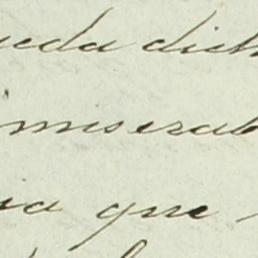 ueda dich
miserab
ia que